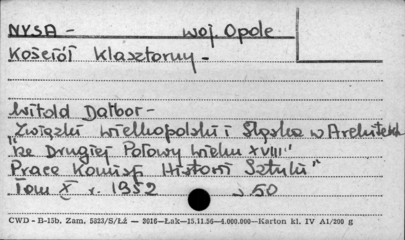 NYSA - woj. Opole
Kościół Klasztorny -
Witold Dalbor -
"Związki wielkopolski i Śląska w Architekt
ze Drugiej Połowy wieku XVIII"
Prace Komisji Historii Sztuki"
Tom X r. 1952 s 50
CWD - B-15b. Zam. 5823/S/Łż — 2016—Łak—15.11.56—4.000.000—Karton kl. IV A1/200 g